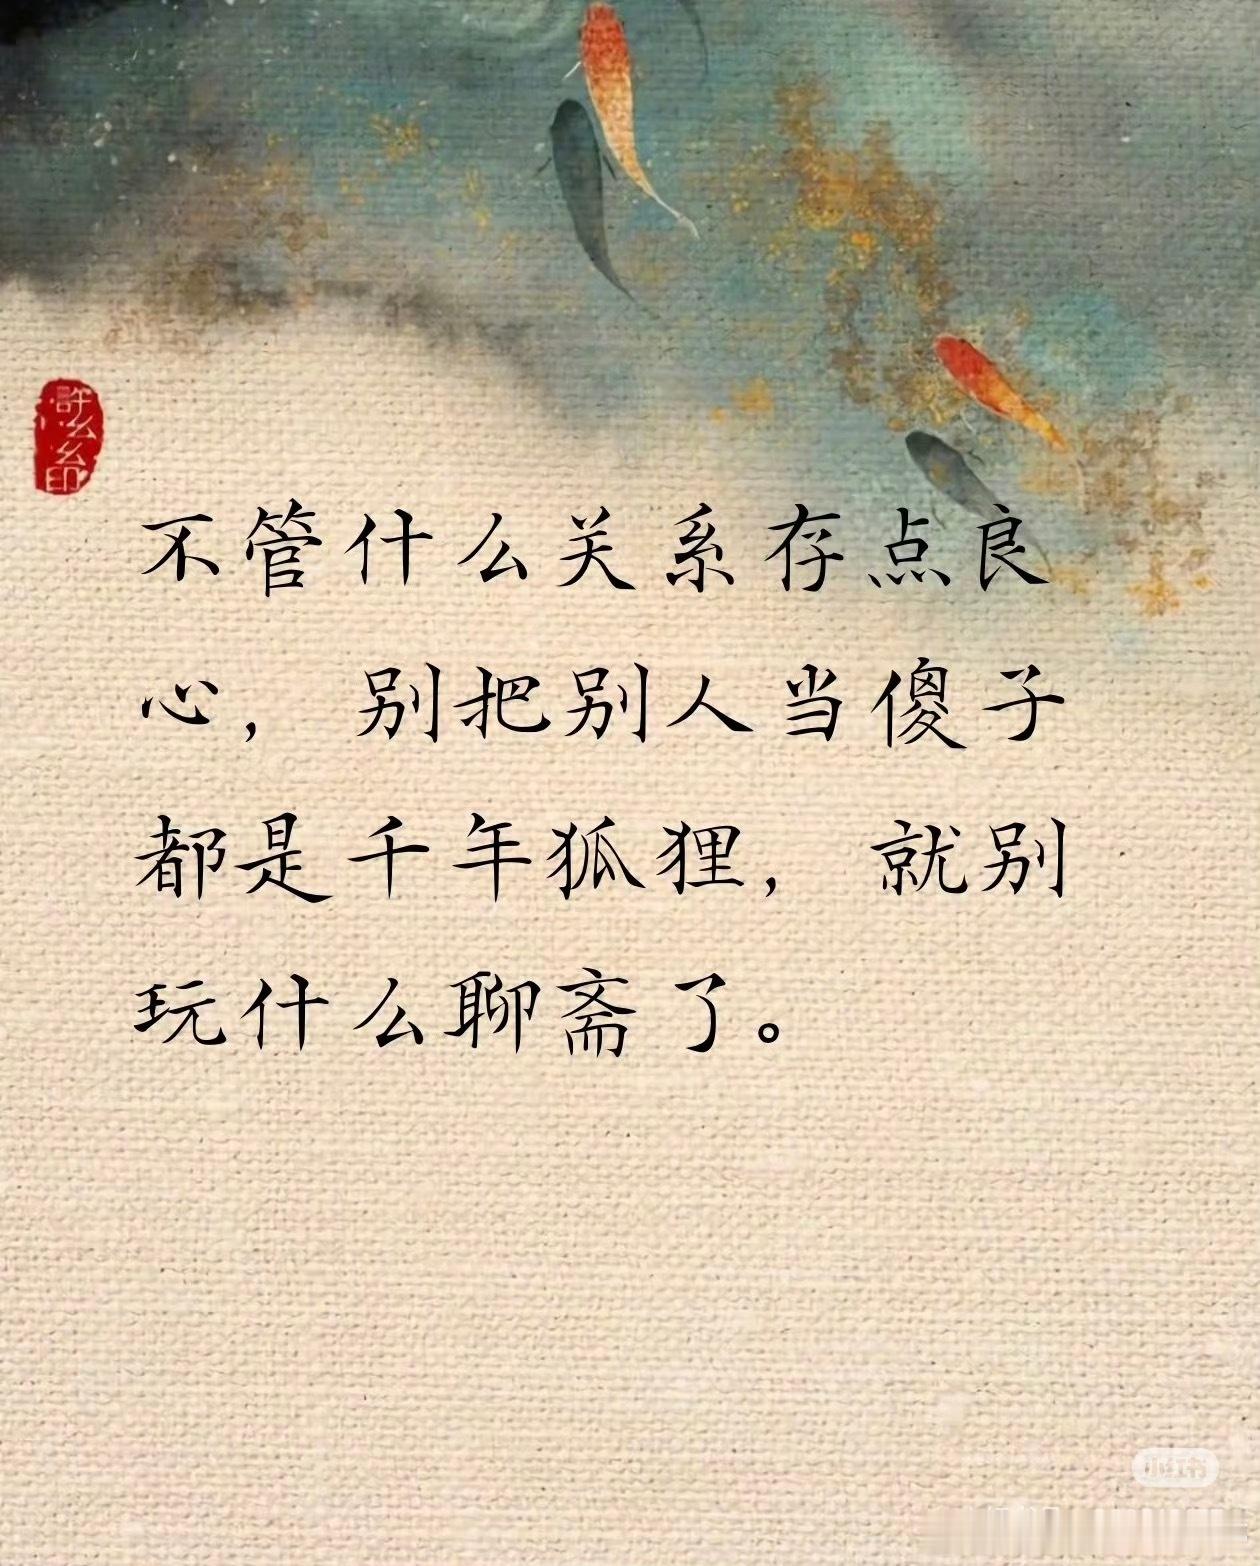 許么么印
不管什么关系存点良
心，别把别人当傻子
都是千年狐狸，就别
玩什么聊斋了。
小红书